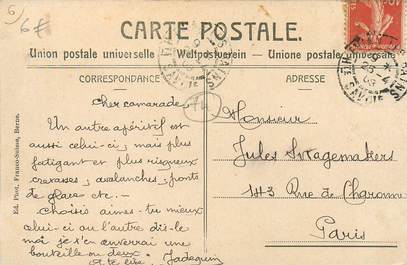 6
6f
74
CARTE POSTALE.
Union postale universelle — Weltpostverein — Unione postale universale
CORRESPONDANCE
ADRESSE
Cher camarade,
Un autre apéritif est
aussi celui-ci, mais plus
fatigant et plus risqueux
crevasses, avalanches, ponts
de glace etc. —
choisis aimes-tu mieux
celui-ci ou l'autre dis-le
moi je t'en enverrai une
bouteille ou deux
A te lire. Jadequin
Monsieur
Jules
143 Rue de Charonne
Paris
Ed. Phot. Franco-Suisse, Berne.